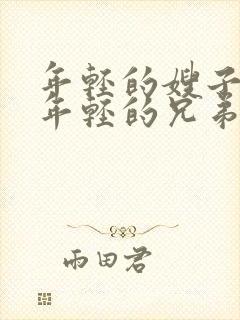 年輕的嫂子
年輕的兄弟
雨田君